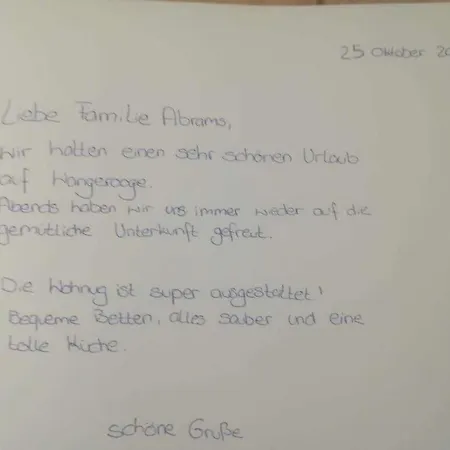 25 Oktober 20
Liebe Familie Abrams,
wir hatten einen sehr schönen Urlaub
auf Wangerooge.
Abends haben wir uns immer wieder auf die
gemütliche Unterkunft gefreut.
Die Wohnug ist super ausgestattet!
Bequeme Betten, alles sauber und eine
tolle Küche.
schöne Grüße